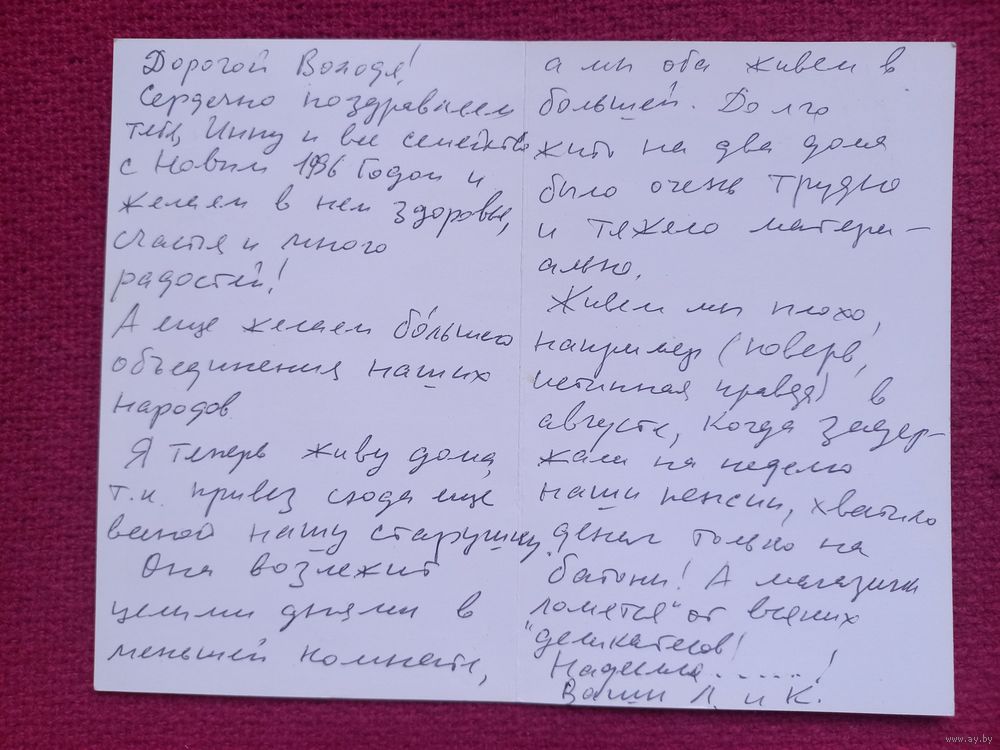 Дорогой Володя!
Сердечно поздравляем
тебя, Инну и все семейство
с Новым 1996 Годом и
желаем в нем здоровья,
счастья и много
радостей!
А еще желаем бо́льшего
объединения наших
народов.
Я теперь живу дома,
т.к. привез сюда еще
весной нашу старушку.
Она возлежит
целыми днями в
меньшей комнате,
а мы оба живем в
большей. Долго
жить на два дома
было очень трудно
и тяжело матери-
ально.
Живем мы плохо,
например (поверь,
истинная правда) в
августе, когда задер-
жали на неделю
наши пенсии, хватило
денег только на
батоны! А магазины
"ломятся" от всяких
"деликатесов!
Надеемся.....!
Ваши Л. и К.
www.ay.by